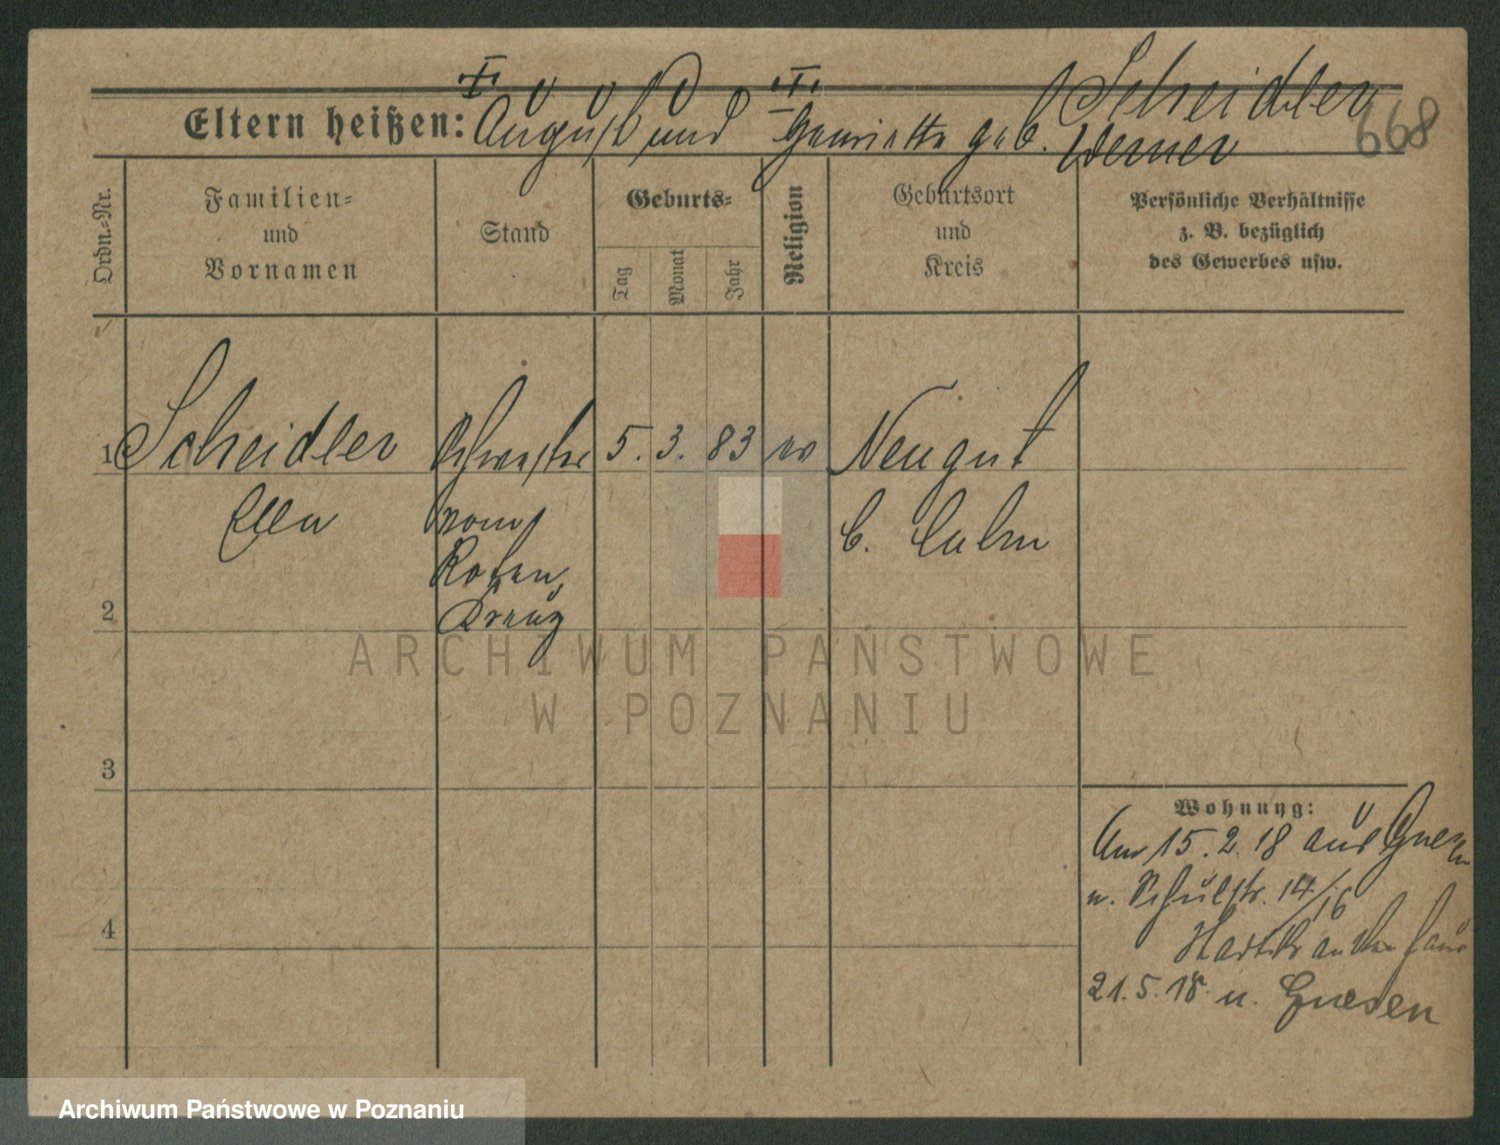 Scheidler
668
Eltern heißen: August und Henriette geb. Werner
Ordn.-Nr.
Familien-
und
Vornamen
Stand
Geburts-
Tag
Monat
Jahr
Religion
Geburtsort
und
Kreis
Persönliche Verhältnisse
z. B. bezüglich
des Gewerbes usw.
1 Scheidler Schwester 5. 3. 83 ev Neugut
Ella vom b. Culm
Roten
Kreuz
2
3
4
Wohnung:
Am 15.2.18 aus Gnesen
n. Schulstr. 14/16
Stadtkrankenhaus
21.5.18 n. Gnesen
ARCHIWUM PAŃSTWOWE
W POZNANIU
Archiwum Państwowe w Poznaniu